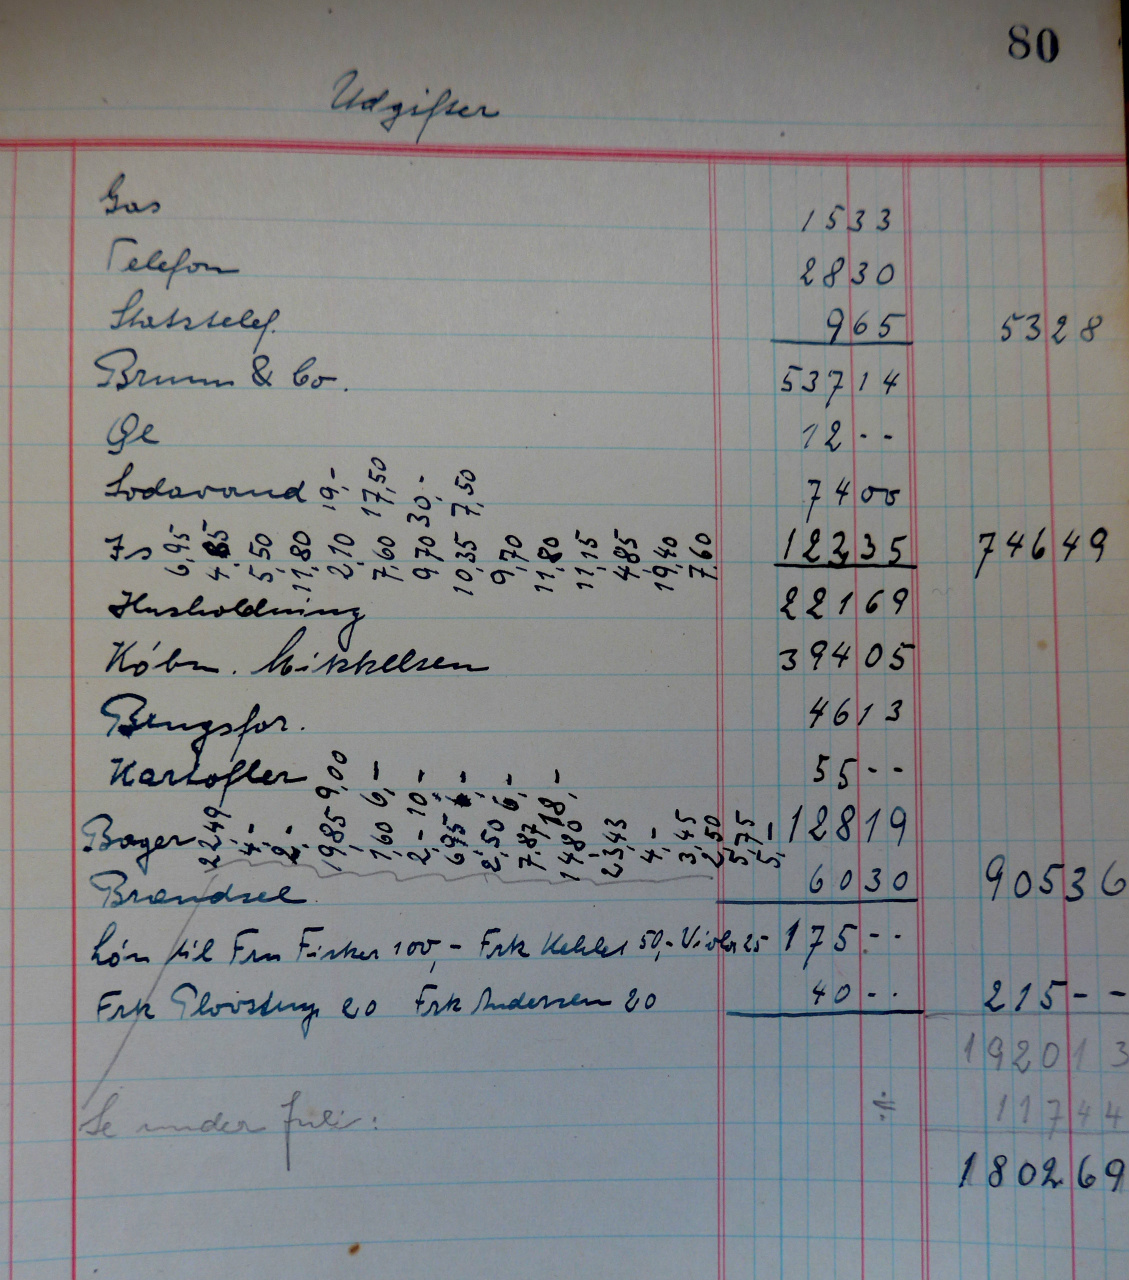 80
Udgifter
Gas 1533
Telefon 2830
Statstelef. 965 5328
Brunn & Co. 53714
Øl 12 - -
Sodavand 19,- 17,50 30,- 7,50 7400
Is 6,95 4,85 5,50 11,80 2,10 7,60 9,70 10,35 9,70 11,80 11,15 4,85 19,40 7,60 12335 74649
Husholdning 22169
Købm. Mikkelsen 39405
Brugsfor. 4613
Kartofler 9,00 6,- 10,- 6,- 18,- 55 - -
Bager 22,49 4,- 2,- 19,85 1,60 2,- 6,95 2,50 7,87 14,80 23,43 4,- 3,45 2,50 5,75 5,- 12819
Brændsel 6030 90536
Løn til Fru Fisker 100,- Frk 50,- Viola 25 175 - -
Frk 20 Frk Andersen 20 40 - - 215 - -
192013
Se under Juli: ÷ 11744
180269